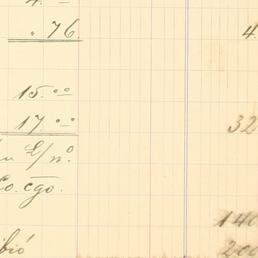 4.
. 76. 4.
15.00
17.00 32
L/ nº
Co. cgo.
140
ibió 200